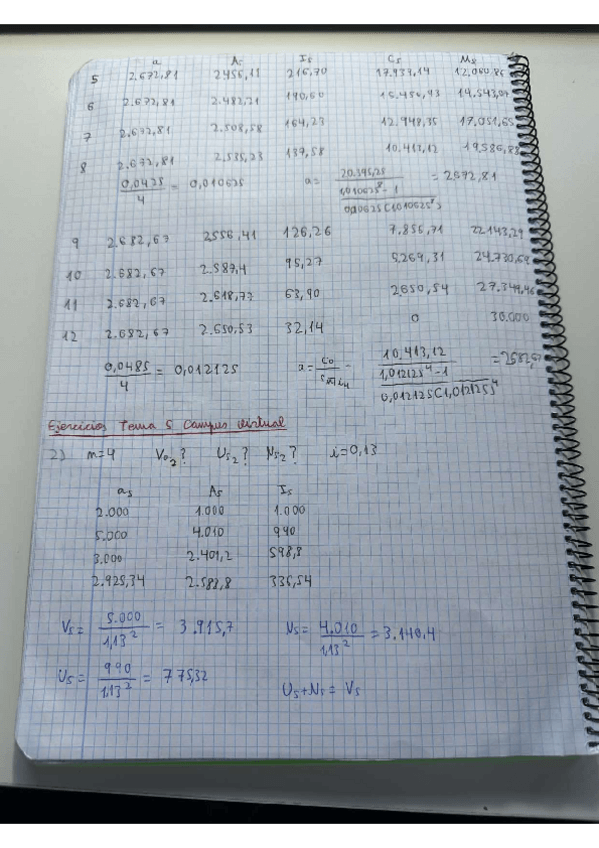 a As Is Cs Ms
5 2.672,81 2456,11 216,70 17.933,14 12.060,86
6 2.672,81 2.482,21 190,60 15.456,93 14.543,07
7 2.672,81 2.508,58 164,23 12.948,35 17.051,65
8 2.672,81 2.535,23 137,58 10.413,12 19.586,88
0,0425/4 = 0,010625 a= 20.395,25 / (1,010625^8 - 1 / 0,010625(1,010625^8)) = 2672,81
9 2.682,67 2556,41 126,26 7.856,71 22143,29
10 2.682,67 2.587,4 95,27 5.269,31 24.730,69
11 2.682,67 2.618,77 63,90 2.650,54 27.349,46
12 2.682,67 2.650,53 32,14 0 30.000
0,0485/4 = 0,012125 a= Co / = 10.413,12 / (1,012125^4 - 1 / 0,012125(1,012125)^4) = 2682,67
Ejercicios Tema 5 Campus virtual
2) m=4 Vo2? Us2? Ns2? i=0,13
as As Is
2.000 1.000 1.000
5.000 4.010 990
3.000 2.401,2 598,8
2.925,34 2.588,8 336,54
Vs= 5.000/1,13^2 = 3.915,7 Ns= 4.010/1,13^2 = 3.140,4
Us= 990/1,13^2 = 775,32
Us+Ns= Vs